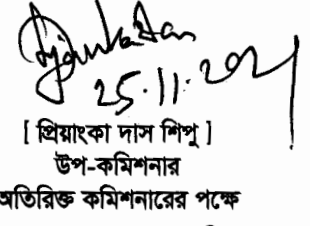 25.11.2021
[ প্রিয়াংকা দাস শিপু ]
উপ-কমিশনার
অতিরিক্ত কমিশনারের পক্ষে